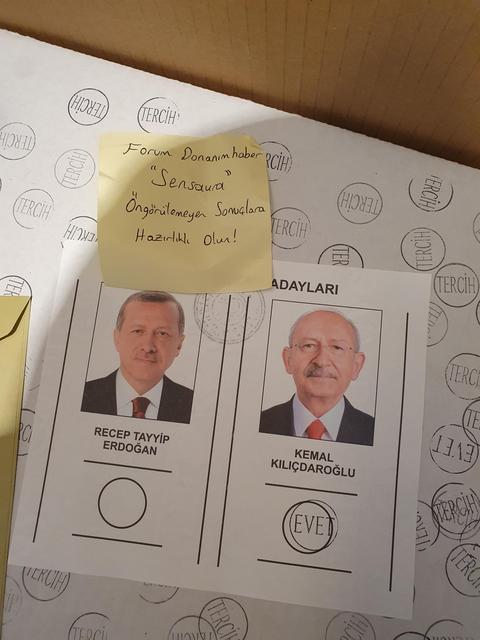 TERCİH
TERCİH
TERCİH
TERCİH
TERCİH
TERCİH
TERCİH
TERCİH
TERCİH
Forum Donanımhaber
"Sensaura"
Öngörülemeyen Sonuçlara
Hazırlıklı Olun!
ADAYLARI
RECEP TAYYİP
ERDOĞAN
KEMAL
KILIÇDAROĞLU
EVET
EVET
TERCİH
TERCİH
TERCİH
TERCİH